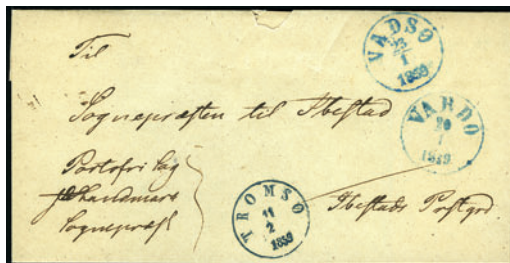 VADSØ
23
1
1859
Til
Sognepræsten til Ibestad
VARDÖ
20
1
1859
Portofri Sag
Sognepræst
TROMSØ
11
2
1859
Ibestads Postgrd.